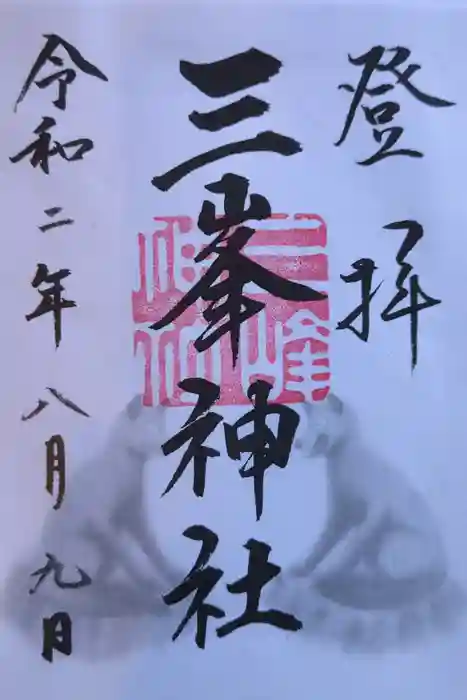 登拝
三峯神社
令和二年八月九日